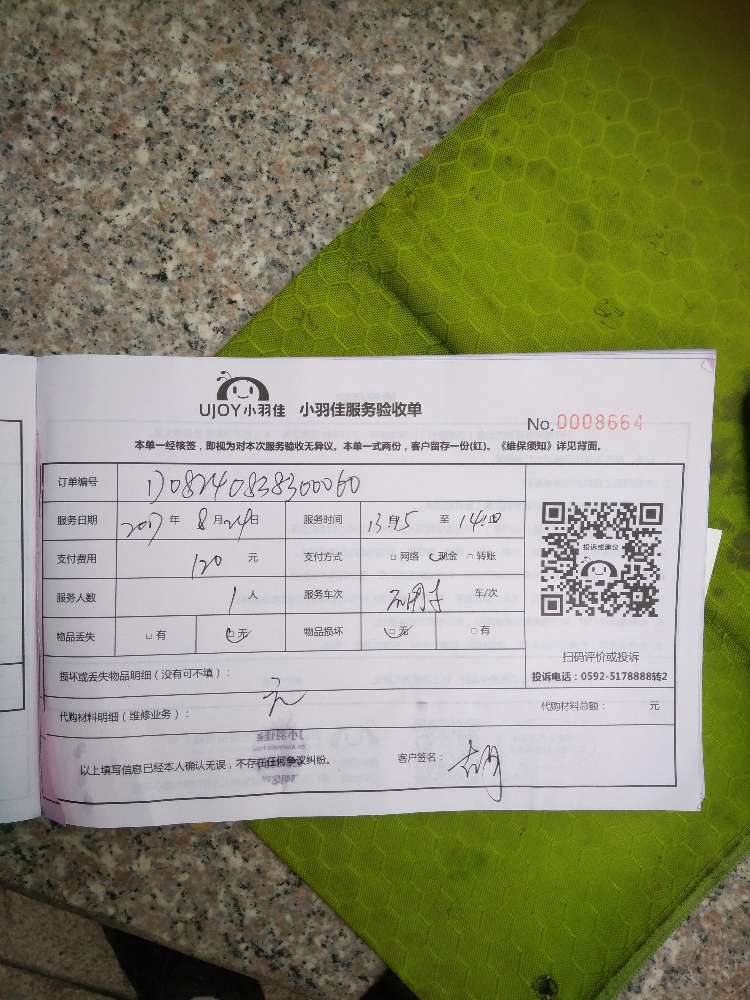 UJOY小羽佳 小羽佳服务验收单
No.0008664
本单一经核签，即视为对本次服务验收无异议。本单一式两份，客户留存一份(红)。《维保须知》详见背面。
订单编号 170824083830006 0
服务日期 2017 年 8 月 24 日 服务时间 13:15 至 14:10
支付费用 120 元 支付方式 □ 网络 □ 现金 □ 转账
服务人数 1 人 服务车次 车/次
物品丢失 □ 有 □ 无 物品损坏 □ 无 □ 有
投诉或建议
扫码评价或投诉
投诉电话：0592-5178888转2
损坏或丢失物品明细（没有可不填）：
无
代购材料明细（维修业务）： 代购材料总额： 元
以上填写信息已经本人确认无误，不存在任何争议纠纷。 客户签名： 胡